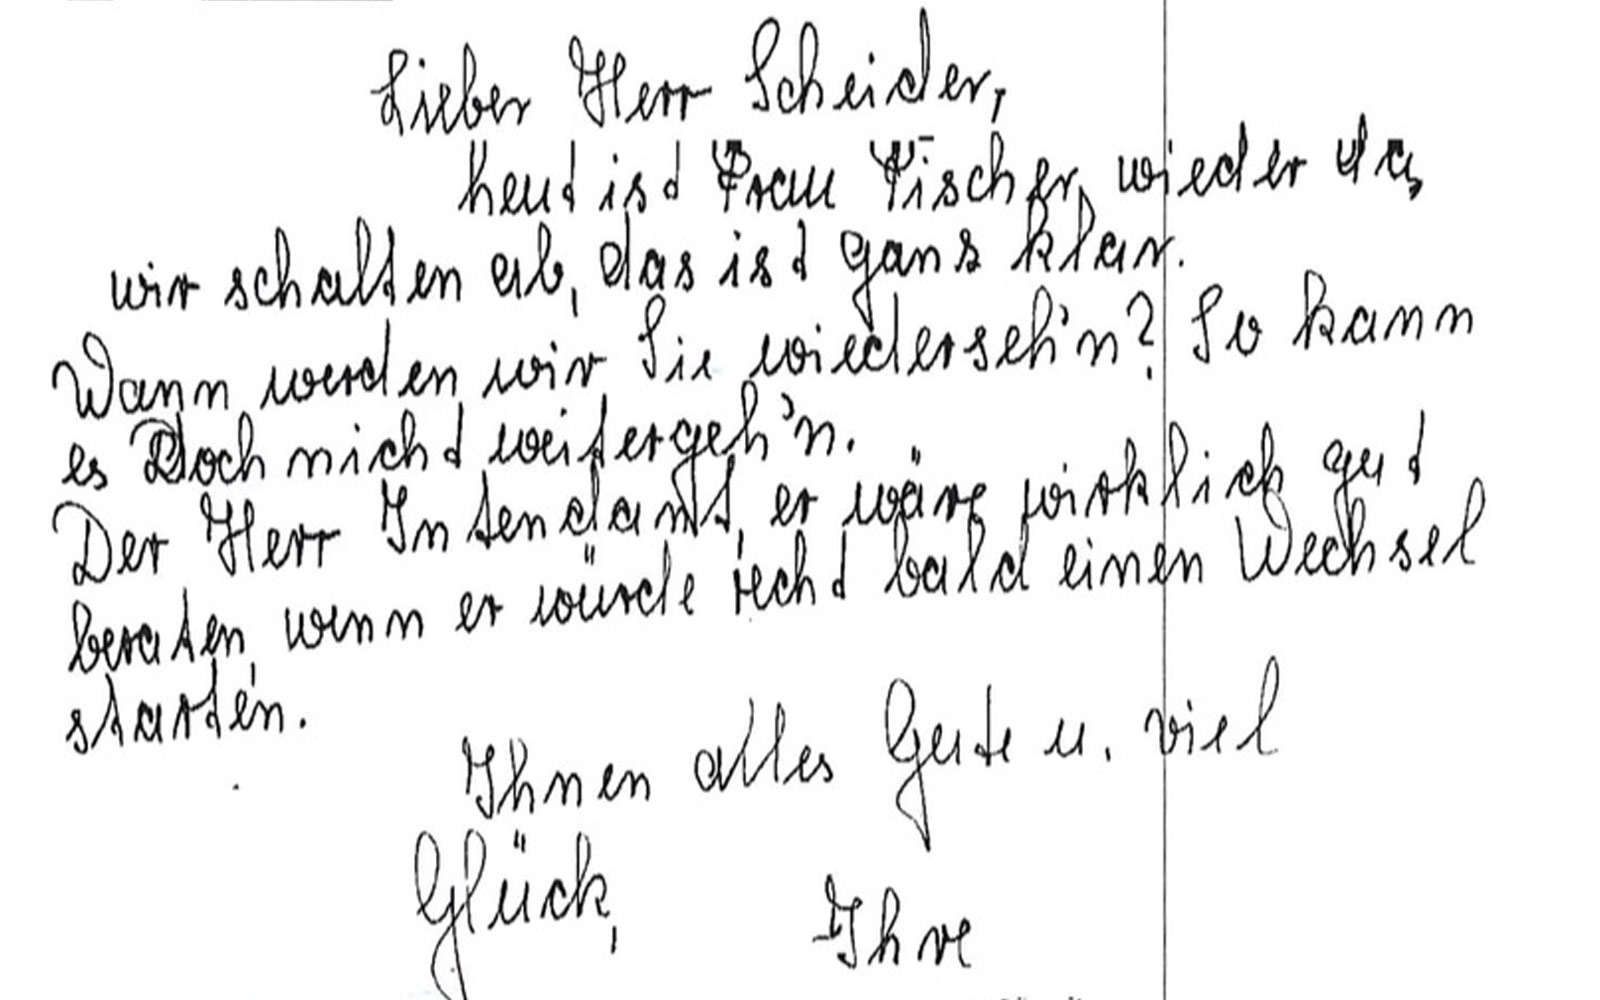 Lieber Herr Scheider,
heut ist Frau Fischer, wieder da,
wir schalten ab, das ist ganz klar.
Wann werden wir Sie wiederseh'n? So kann
es Doch nicht weitergeh'n.
Der Herr Intendant, er wäre wirklich gut
beraten, wenn er würde recht bald einen Wechsel
starten.
Ihnen alles Gute u. viel
Glück,
Ihre